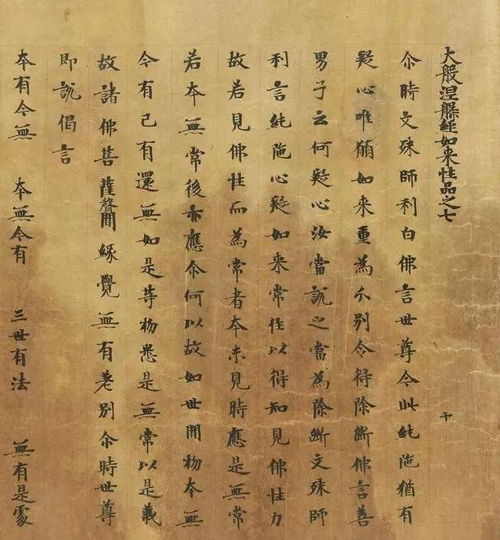 大般涅槃經如来性品之七 十
尒時文殊師利白佛言世尊今此純陁猶有
疑心唯願如来重為分別令得除斷佛言善
男子云何疑心汝當說之當為除斷文殊師
利言純陁心疑如来常住以得知見佛性力
故若見佛性而為常者本未見時應是無常
若本無常後亦應尒何以故如世閒物本無
今有已有還無如是等物悉是無常以是義
故諸佛菩薩聲聞緣覺無有差別尒時世尊
即說偈言
本有今無 本無今有 三世有法 無有是處